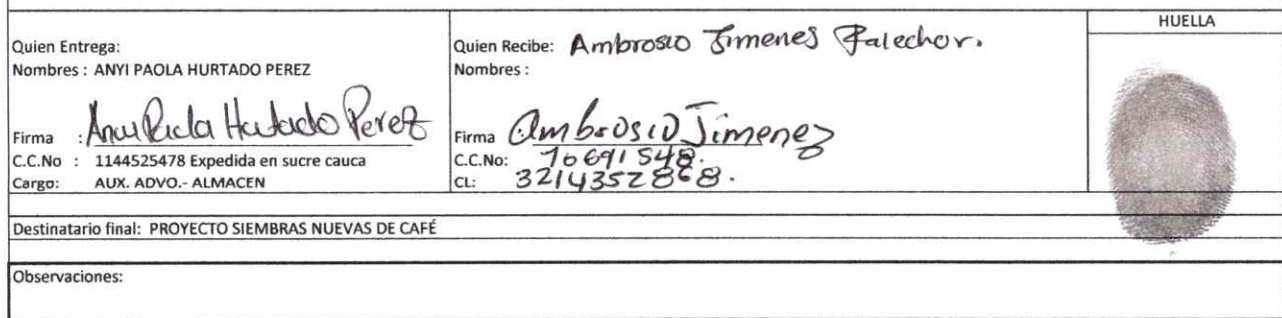 HUELLA
Quien Entrega:
Nombres : ANYI PAOLA HURTADO PEREZ
Firma : Anyi Paola Hurtado Perez
C.C.No : 1144525478 Expedida en sucre cauca
Cargo: AUX. ADVO.- ALMACEN
Quien Recibe: Ambrosio Jimenes Palechor.
Nombres :
Firma : Ambrosio Jimenez
C.C.No: 10691548.
CL: 3214352868.
Destinatario final: PROYECTO SIEMBRAS NUEVAS DE CAFÉ
Observaciones: